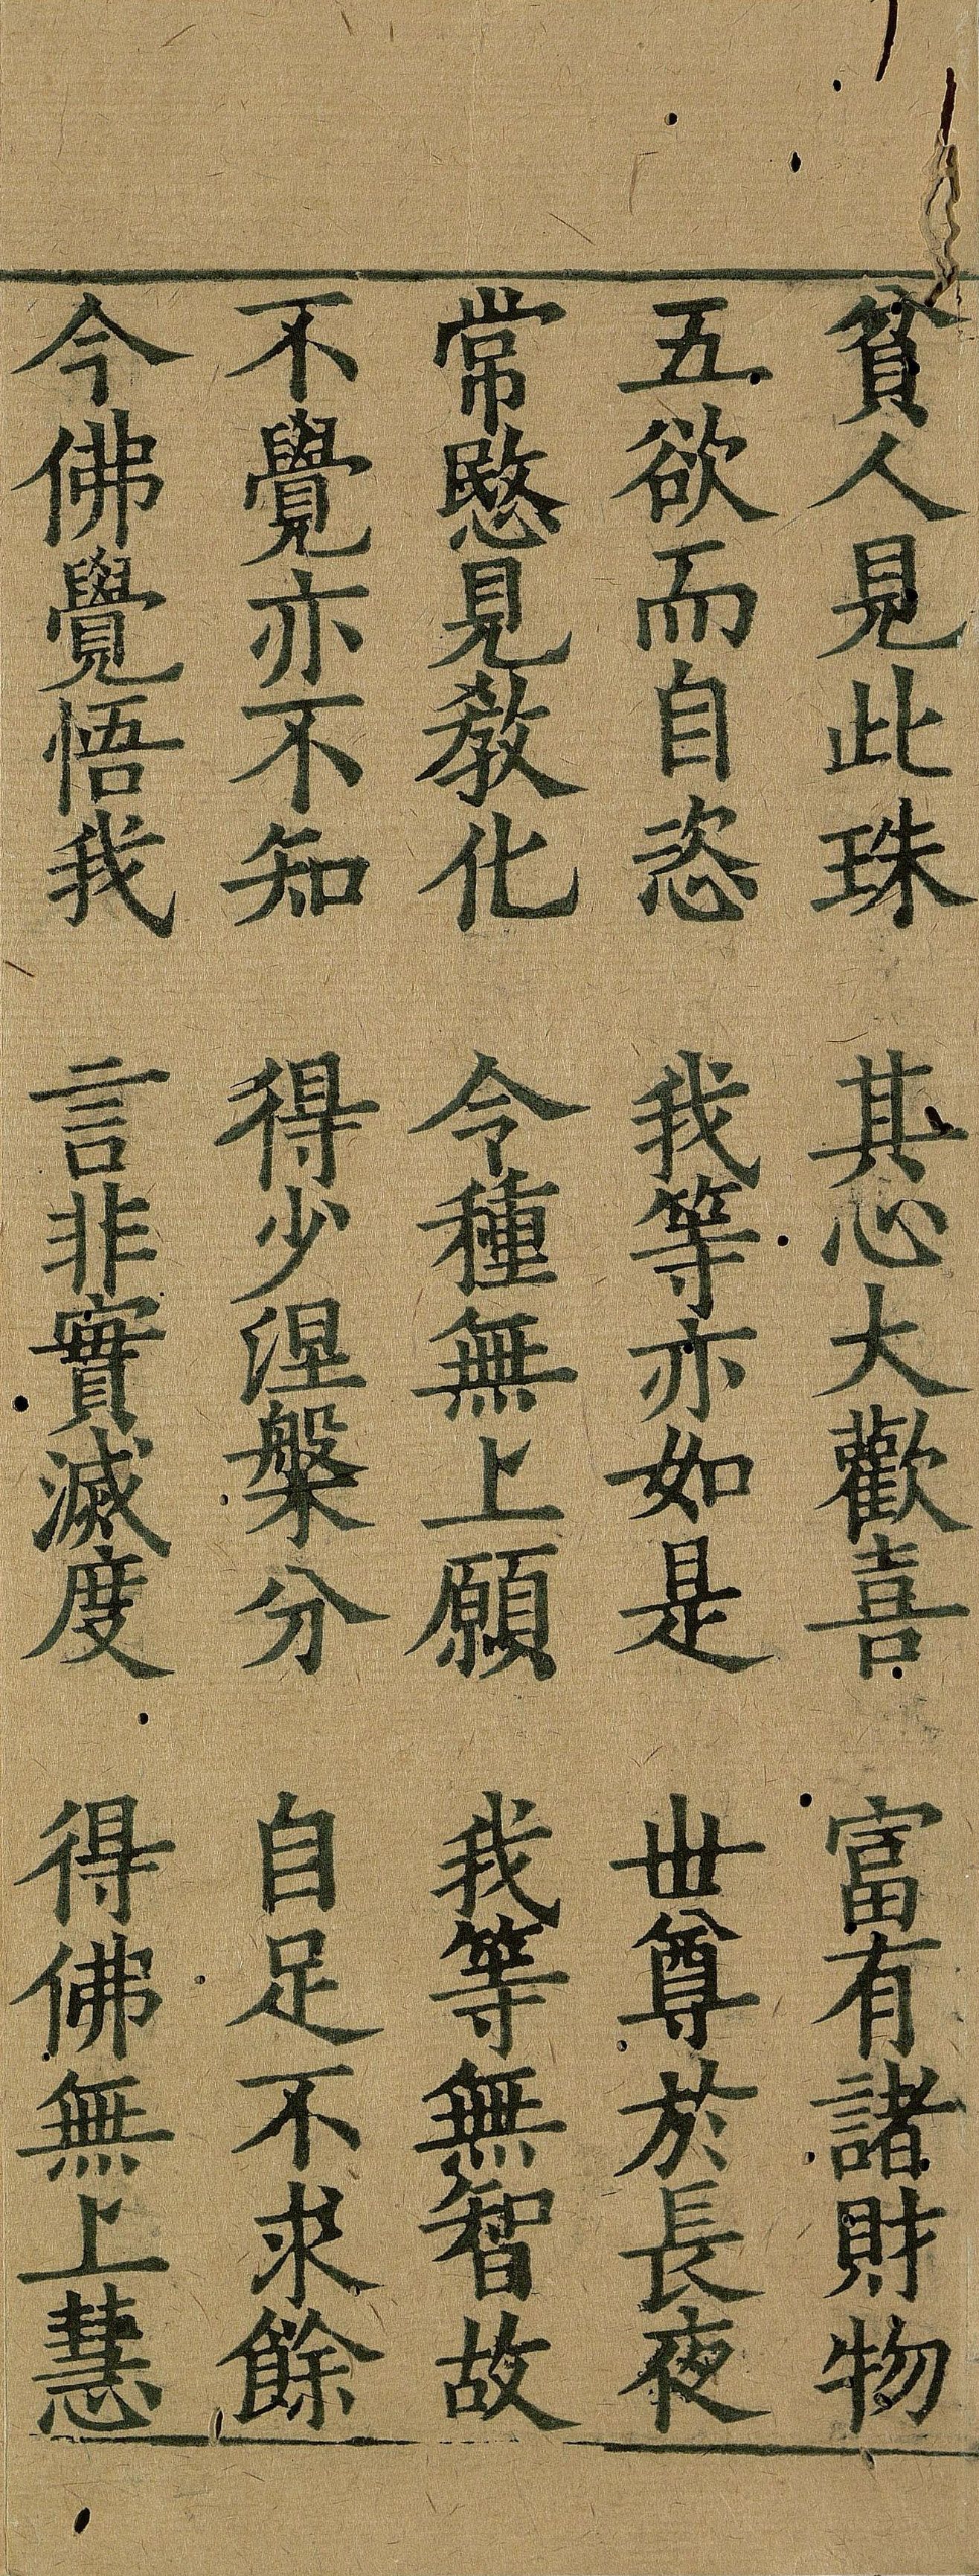 貧人見此珠　其心大歡喜　富有諸財物
五欲而自恣　我等亦如是　世尊於長夜
常愍見教化　令種無上願　我等無智故
不覺亦不知　得少涅槃分　自足不求餘
今佛覺悟我　言非實滅度　得佛無上慧